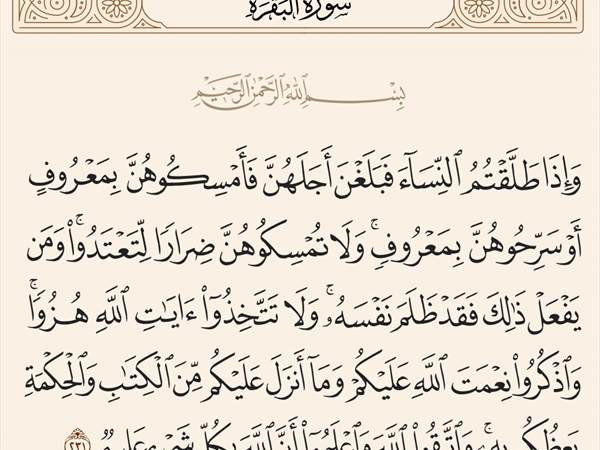 سُورَةُ البَقَرَةِ
بِسْمِ اللَّهِ الرَّحْمَٰنِ الرَّحِيمِ
وَإِذَا طَلَّقْتُمُ ٱلنِّسَآءَ فَبَلَغْنَ أَجَلَهُنَّ فَأَمْسِكُوهُنَّ بِمَعْرُوفٍ
أَوْ سَرِّحُوهُنَّ بِمَعْرُوفٖۚ وَلَا تُمْسِكُوهُنَّ ضِرَارٗا لِّتَعْتَدُواْۚ وَمَن
يَفْعَلْ ذَٰلِكَ فَقَدْ ظَلَمَ نَفْسَهُۥۚ وَلَا تَتَّخِذُوٓاْ ءَايَٰتِ ٱللَّهِ هُزُوٗاۚ
وَٱذْكُرُواْ نِعْمَتَ ٱللَّهِ عَلَيْكُمْ وَمَآ أَنزَلَ عَلَيْكُم مِّنَ ٱلْكِتَٰبِ وَٱلْحِكْمَةِ
يَعِظُكُم بِهِۦۚ وَٱتَّقُواْ ٱللَّهَ وَٱعْلَمُوٓاْ أَنَّ ٱللَّهَ بِكُلِّ شَيْءٍ عَلِيمٞ ٢٣١